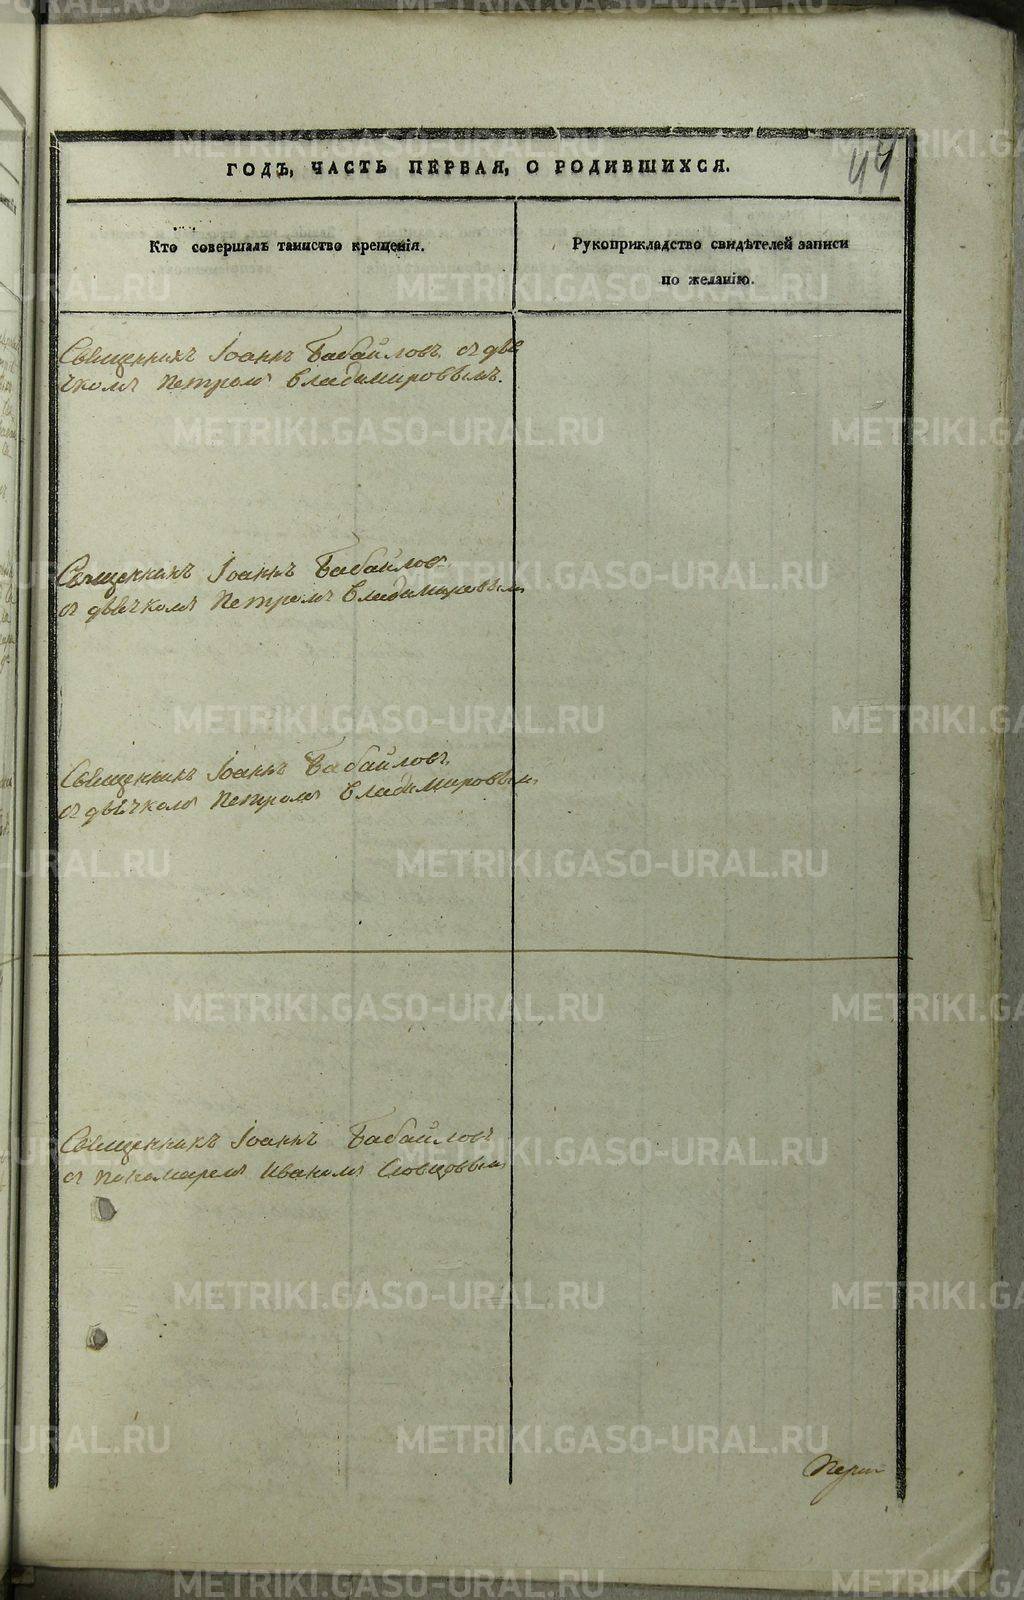 44
ГОДЪ, ЧАСТЬ ПЕРВАЯ, О РОДИВШИХСЯ.
Кто совершалъ таинство крещенія.
Рукоприкладство свидѣтелей записи
по желанію.
Священникъ Іоаннъ Бабайловъ съ дьѣ
чкомъ Петромъ Владимировымъ.
Священникъ Іоаннъ Бабайловъ
съ дьѣчкомъ Петромъ Владимировымъ
Священникъ Іоаннъ Бабайловъ
съ дьѣчкомъ Петромъ Владимировымъ
Священникъ Іоаннъ Бабайловъ
съ пономаремъ Иваномъ Словцовымъ
METRIKI.GASO-URAL.RU